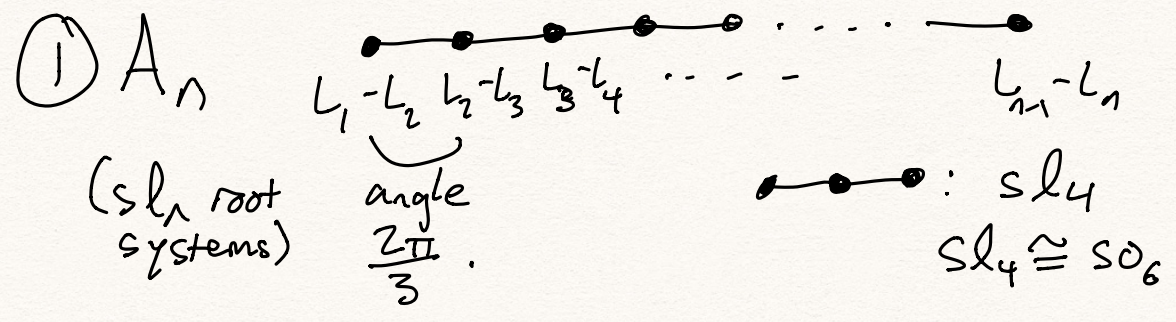 ① Aₙ
L₁-L₂ L₂-L₃ L₃-L₄ . . - - - Lₙ₋₁-Lₙ
(slₙ root systems)
angle
2π/3 .
: sl₄
sl₄ ≅ so₆